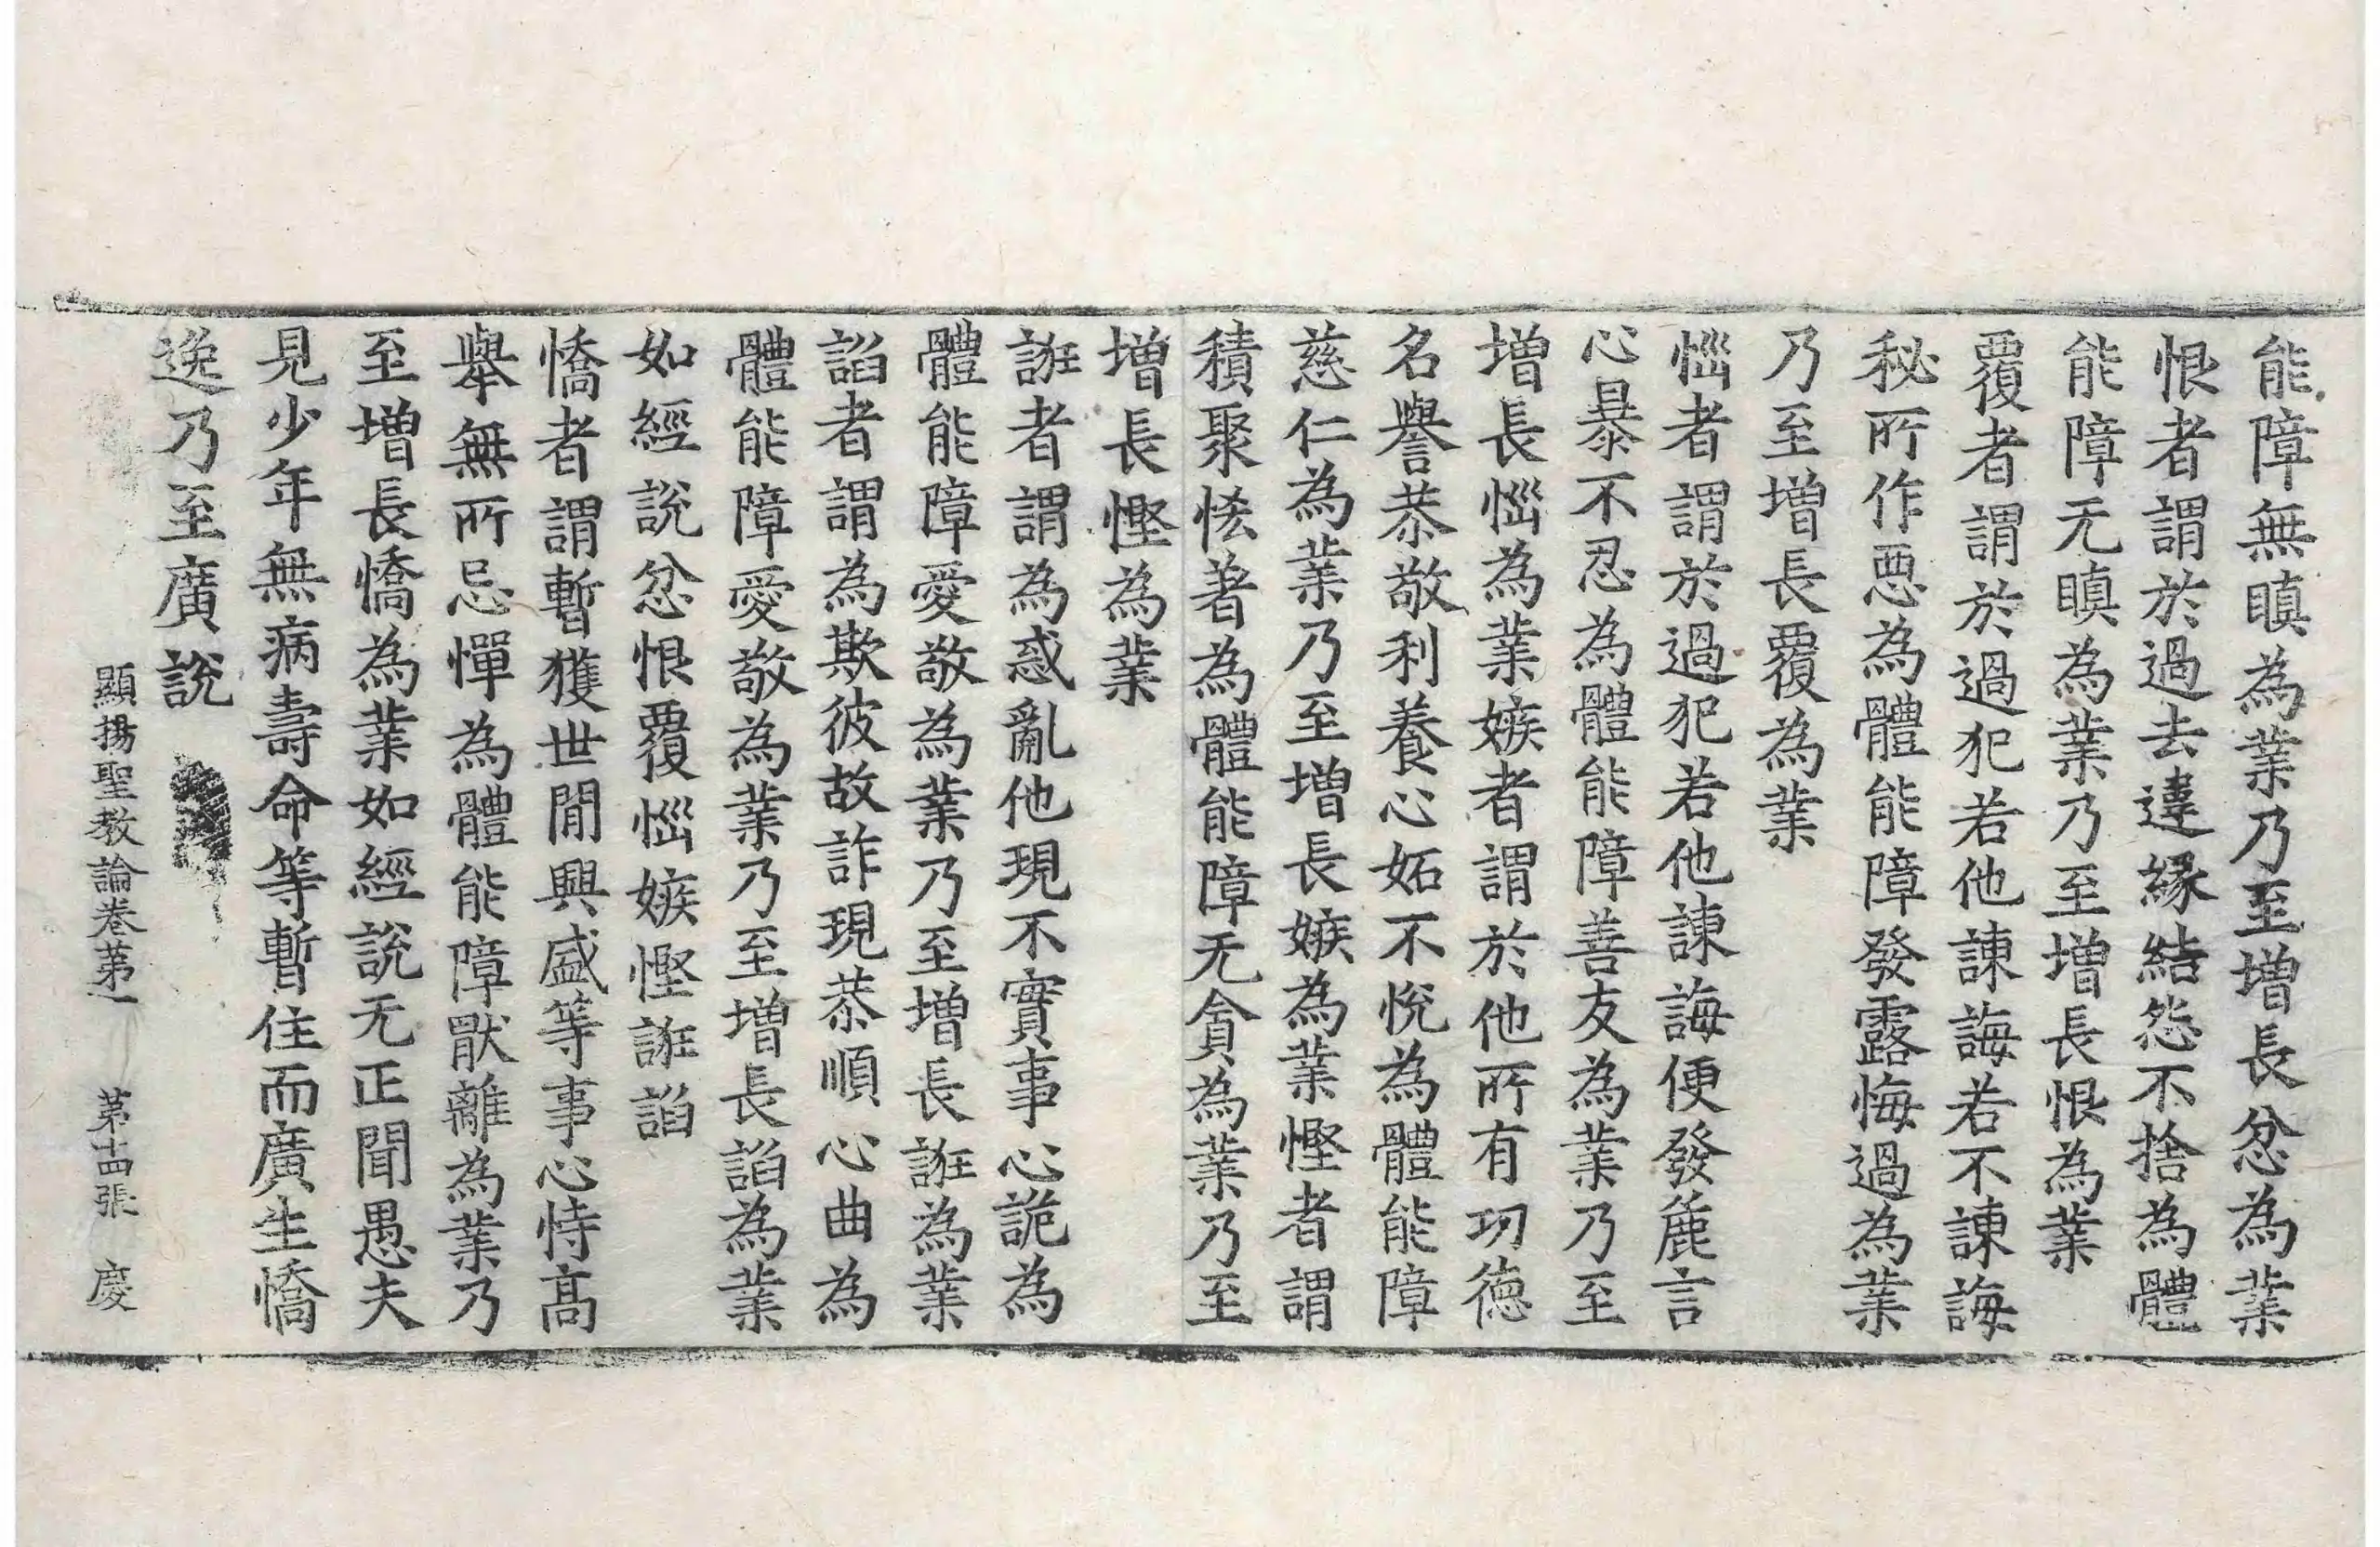 能障無瞋為業乃至增長忿為業
恨者謂於過去違緣結怨不捨為體
能障无瞋為業乃至增長恨為業
覆者謂於過犯若他諫誨若不諫誨
秘所作惡為體能障發露悔過為業
乃至增長覆為業
惱者謂於過犯若他諫誨便發麁言
心暴不忍為體能障善友為業乃至
增長惱為業嫉者謂於他所有功德
名譽恭敬利養心妬不悅為體能障
慈仁為業乃至增長嫉為業慳者謂
積聚恡著為體能障无貪為業乃至
增長慳為業
誑者謂為惑亂他現不實事心詭為
體能障愛敬為業乃至增長誑為業
諂者謂為欺彼故詐現恭順心曲為
體能障愛敬為業乃至增長諂為業
如經說忿恨覆惱嫉慳誑諂
憍者謂暫獲世間興盛等事心恃高
舉無所忌憚為體能障猒離為業乃
至增長憍為業如經說无正聞愚夫
見少年無病壽命等暫住而廣生憍
逸乃至廣說
顯揚聖教論卷苐一 苐十四張 慶